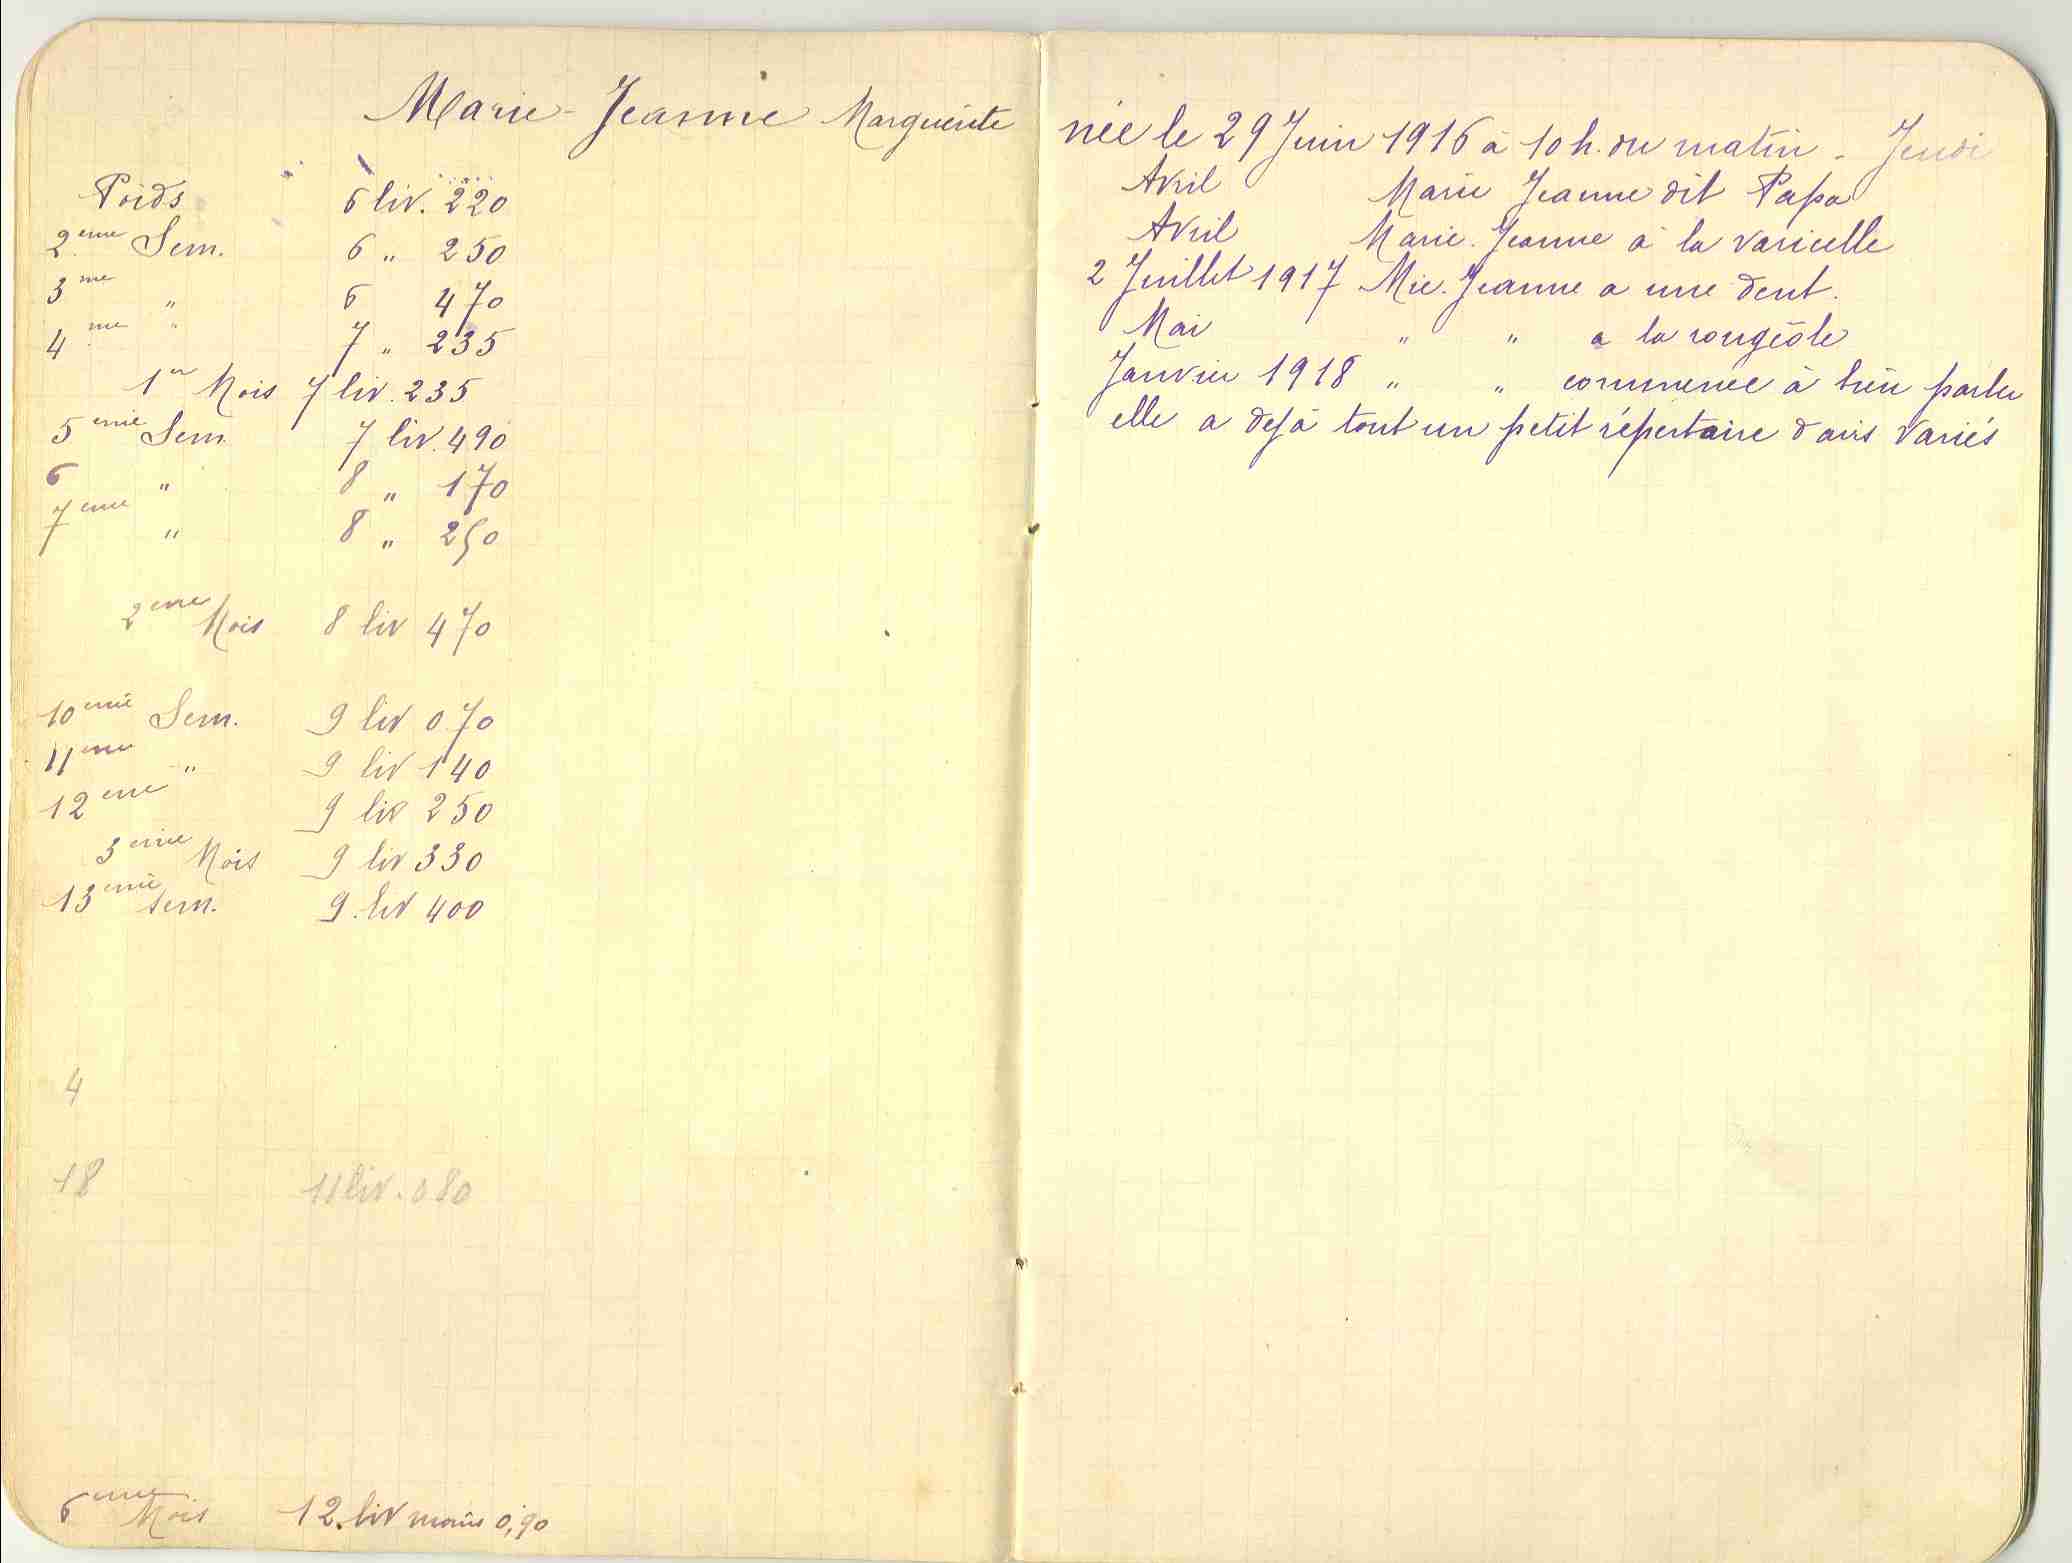 Marie-Jeanne Marguerite
Poids 6 liv. 220
2.eme Sem. 6 " 250
3 me " 6 470
4 me " 7 " 235
1er Mois 7 liv. 235
5 eme Sem 7 liv. 490
6 " 8 " 170
7 eme " 8 " 250
2 eme Mois 8 liv 470
10 eme Sem. 9 liv 070
11 eme " 9 liv 140
12 eme 9 liv 250
3 eme Mois 9 liv 330
13 eme sem. 9. liv 400
4
18 11 liv. 080
6 eme Mois 12. liv moins 0,90
née le 29 Juin 1916 à 10 h. du matin - Jeudi
Avril Marie Jeanne dit Papa
Avril Marie. Jeanne a la varicelle
2 Juillet 1917 Mie. Jeanne a une dent.
Mai " " a la rougeole
Janvier 1918 " " commence à bien parler
elle a dejà tout un petit répertaire d airs variés